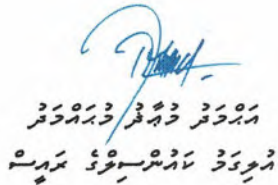 އަޙުމަދު މުޢާޛު މުޙައްމަދު
އުލިގަމު ކައުންސިލްގެ ރައީސް